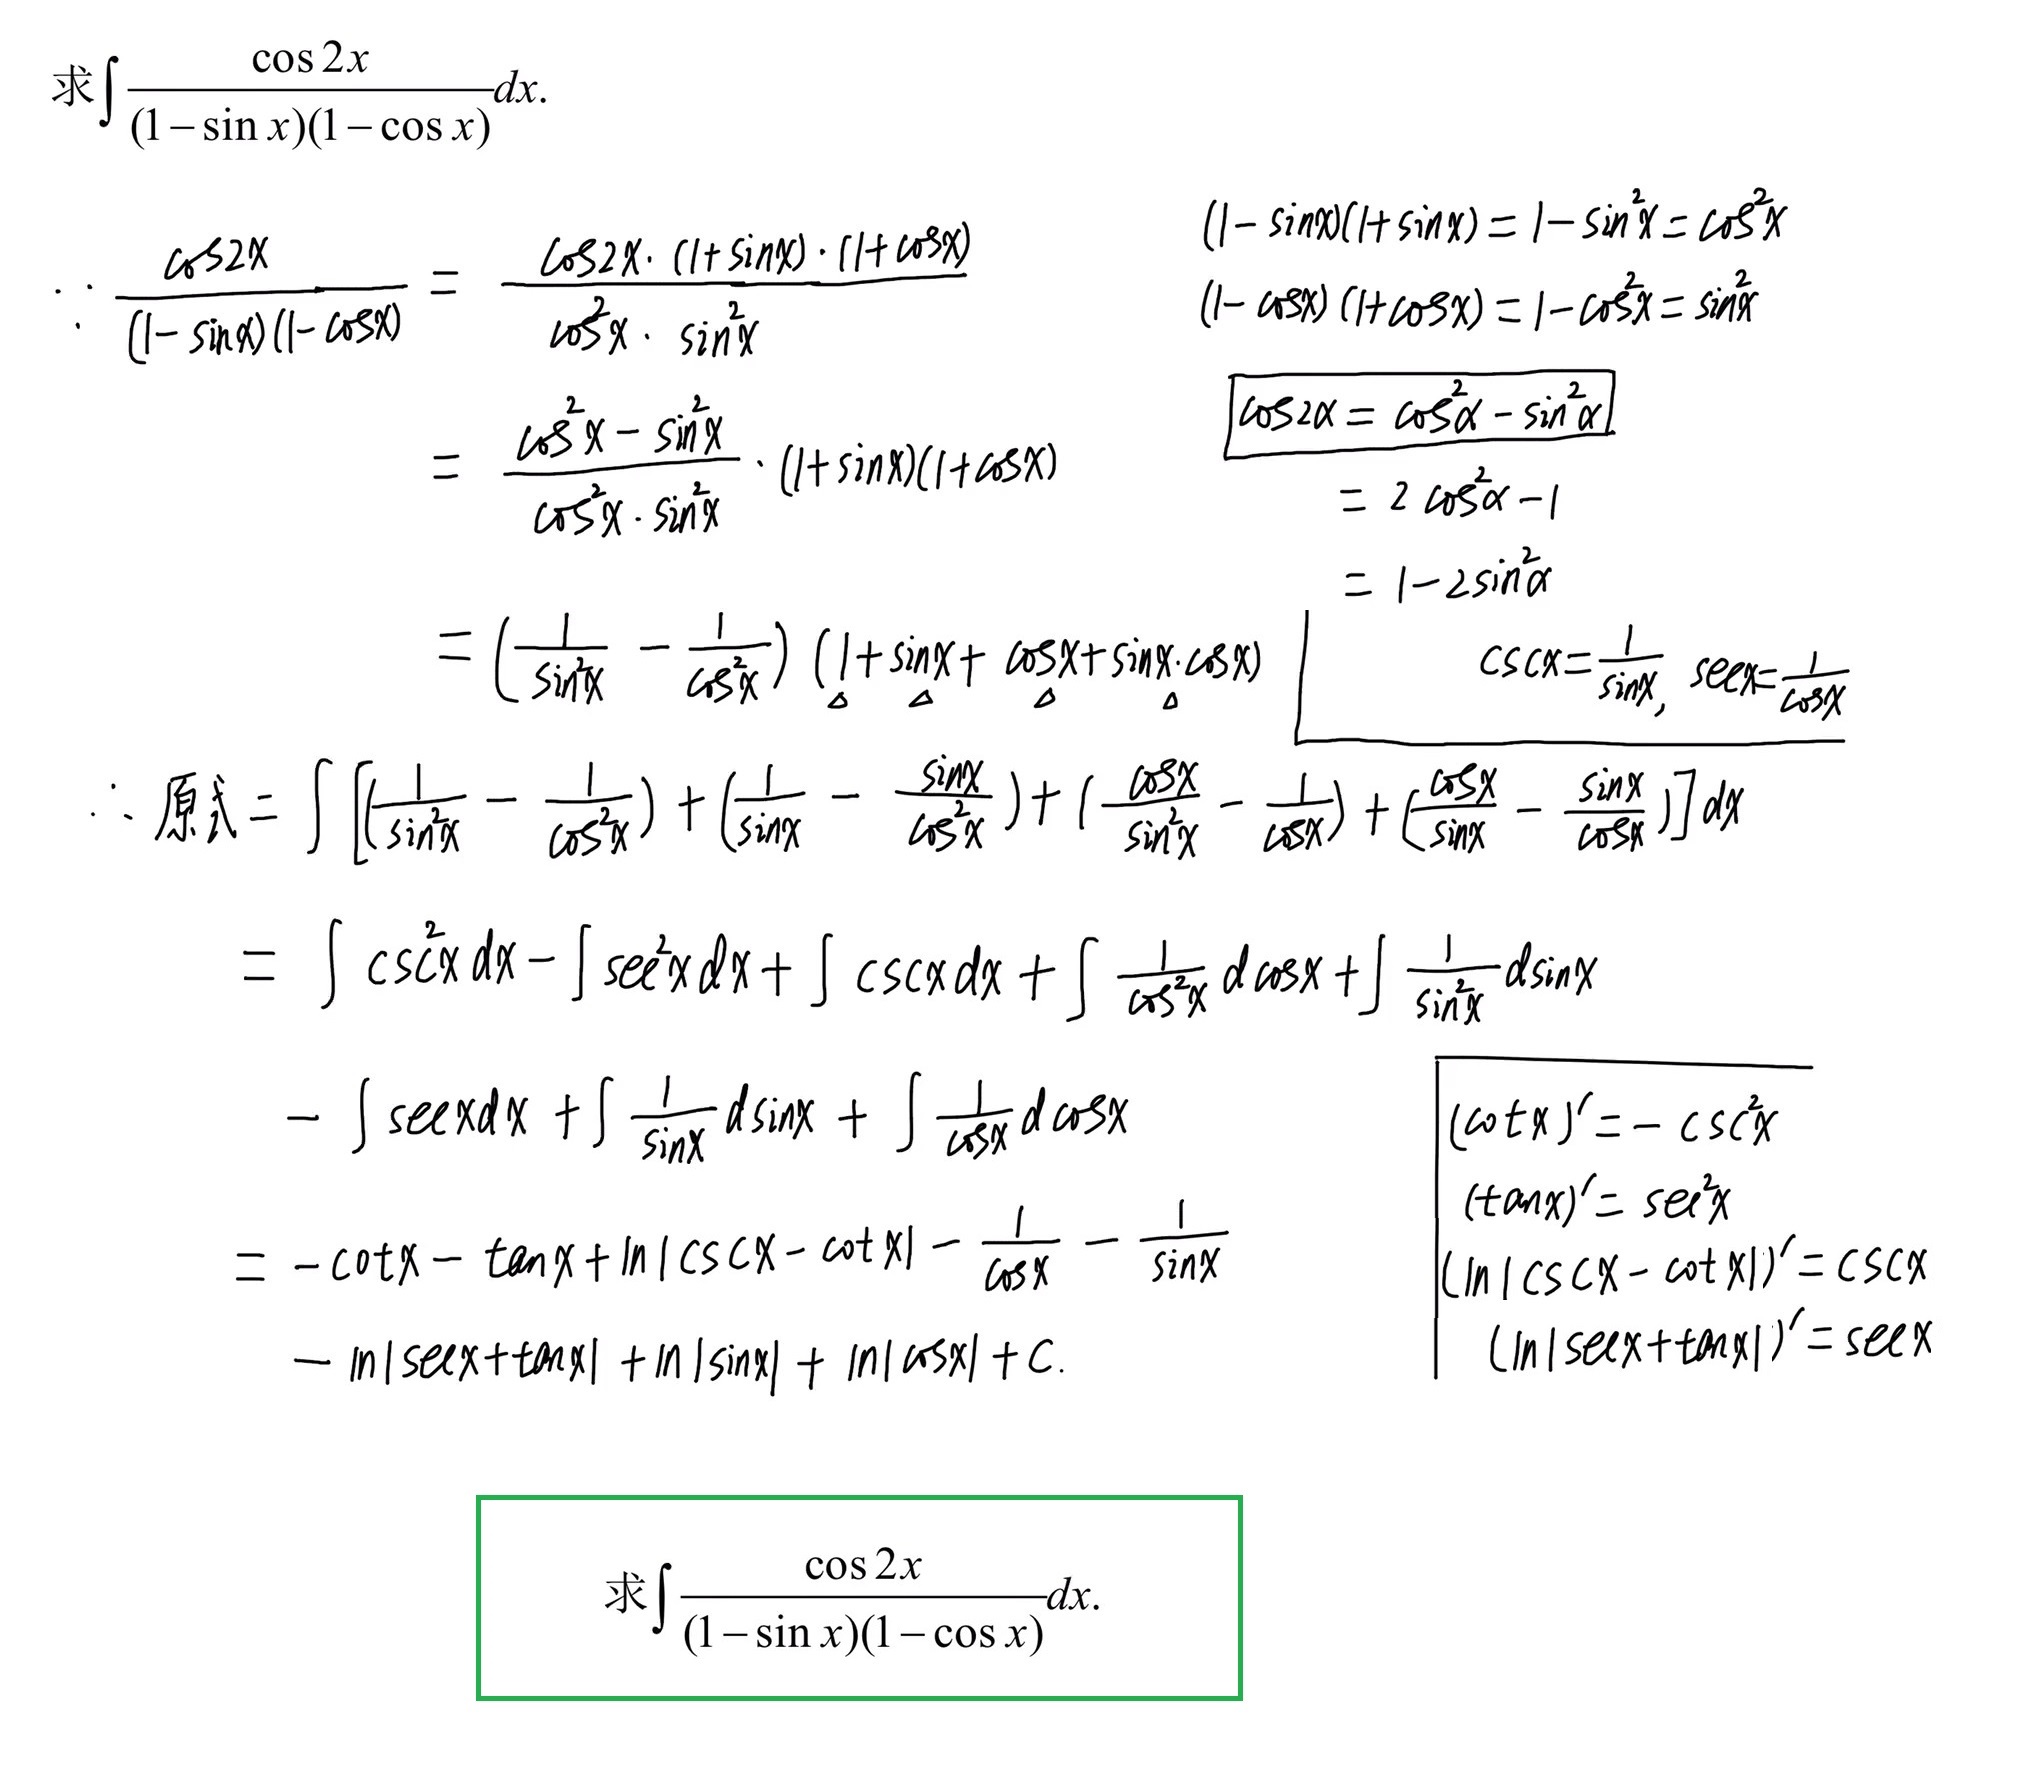 求∫ cos 2x / (1 − sin x)(1 − cos x) dx.
(1 − sinx)(1 + sinx) = 1 − sin²x = cos²x
(1 − cosx)(1 + cosx) = 1 − cos²x = sin²x
∵ cos2x / (1 − sinx)(1 − cosx) = cos2x · (1 + sinx) · (1 + cosx) / cos²x · sin²x
cos2α = cos²α − sin²α
= 2cos²α − 1
= 1 − 2sin²α
= (cos²x − sin²x) / (cos²x · sin²x) · (1 + sinx)(1 + cosx)
= (1/sin²x − 1/cos²x) (1 + sinx + cosx + sinx·cosx)
△ △ △ △
cscx = 1/sinx, secx = 1/cosx
∴ 原式 = ∫ [(1/sin²x − 1/cos²x) + (1/sinx − sinx/cos²x) + (cosx/sin²x − 1/cosx) + (cosx/sinx − sinx/cosx)] dx
= ∫ csc²x dx − ∫ sec²x dx + ∫ cscx dx + ∫ 1/cos²x dcosx + ∫ 1/sin²x dsinx
− ∫ secx dx + ∫ 1/sinx dsinx + ∫ 1/cosx dcosx
= −cotx − tanx + ln|cscx − cotx| − 1/cosx − 1/sinx
− ln|secx + tanx| + ln|sinx| + ln|cosx| + C.
(cotx)′ = −csc²x
(tanx)′ = sec²x
(ln|cscx − cotx|)′ = cscx
(ln|secx + tanx|)′ = secx
求∫ cos 2x / (1 − sin x)(1 − cos x) dx.